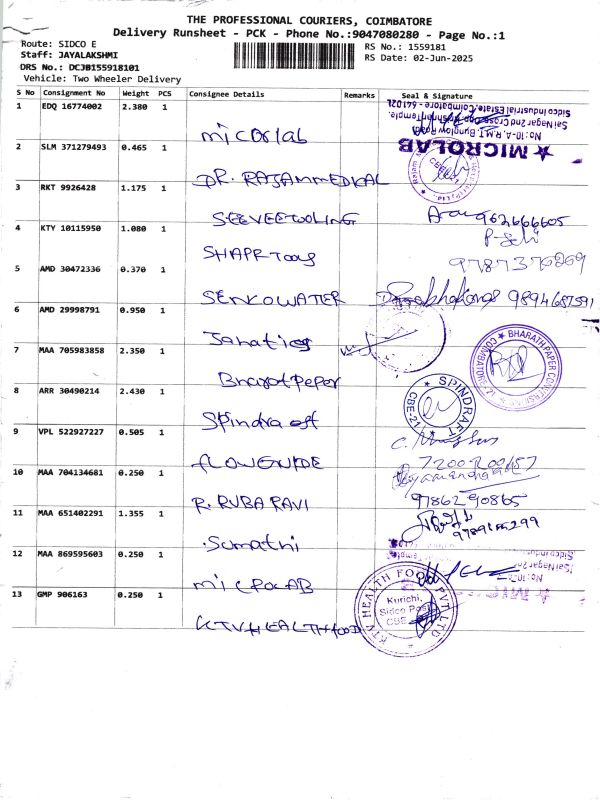 THE PROFESSIONAL COURIERS, COIMBATORE
Delivery Runsheet - PCK - Phone No.:9047080280 - Page No.:1
Route: SIDCO E
Staff: JAYALAKSHMI
DRS No.: DCJB155918101
Vehicle: Two Wheeler Delivery
RS No.: 1559181
RS Date: 02-Jun-2025
S No Consignment No Weight PCS Consignee Details Remarks Seal & Signature
1 EDQ 16774002 2.380 1 microlab
No:10-A, R.M.T. Bunglow Road,
Sai Nagar 2nd Cross,
Sidco Industrial Estate, Coimbatore - 641021.
★ MICROLAB
2 SLM 371279493 0.465 1 DR. RAJAMMEDICAL
3 RKT 9926428 1.175 1 SEEVEETOOLING
4 KTY 10115950 1.080 1 SHAPRTOOLS
9787370209
5 AMD 30472336 0.370 1 SENKOWATER 9894687591
6 AMD 29998791 0.950 1
7 MAA 705983858 2.350 1 Bharatpeper
BHARATH PAPER CONVERSIONS ★ COIMBATORE
8 ARR 30490214 2.430 1 Spindraft
★ SPINDRAFT ★ CBE-21
9 VPL 522927227 0.505 1 FLOWGUIDE
10 MAA 704134681 0.250 1 R. RUBA RAVI 9786290865
11 MAA 651402291 1.355 1 Sumathi
12 MAA 869595603 0.250 1 MICROLAB
13 GMP 906163 0.250 1 KTVHEALTHFOOD
KTV HEALTH FOOD PVT LTD
Kurichi,
Sidco Post
CBE